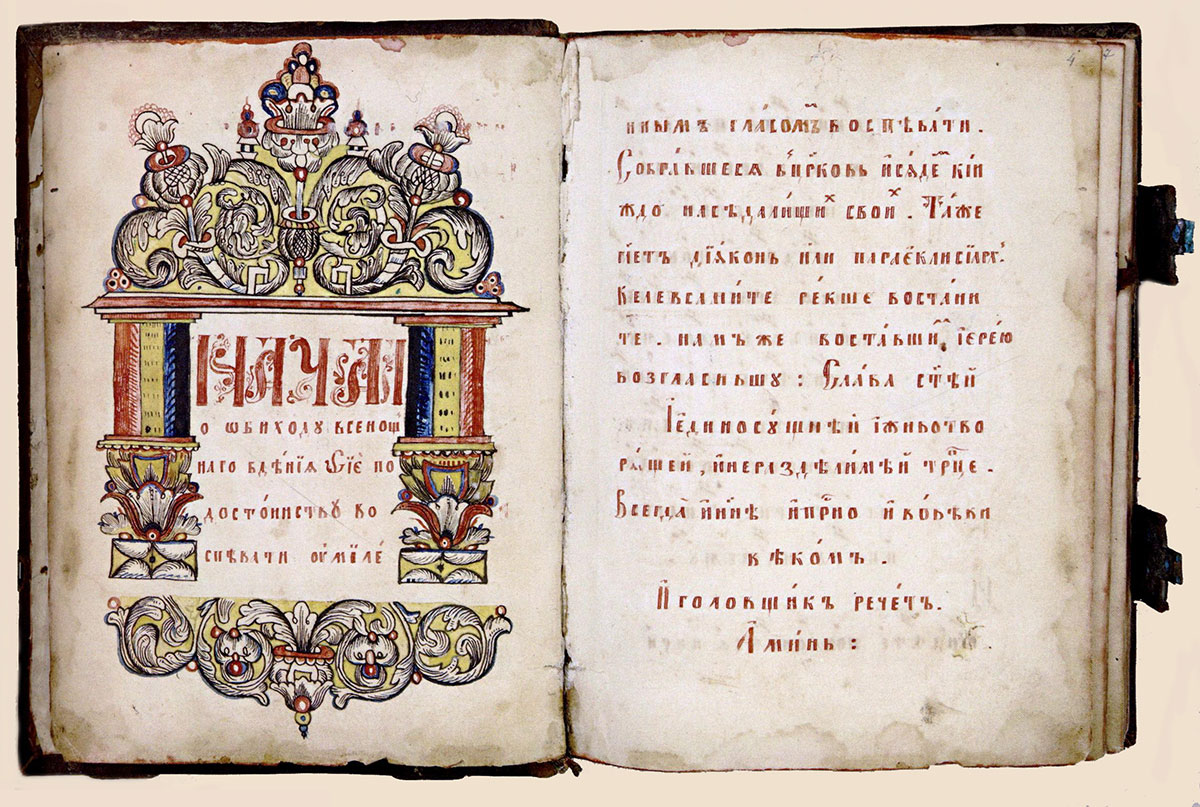 НАЧАЛ
о ѡбиходу всенощ
наго бдѣнїѧ Сїѐ по
досто́инству во
спѣвати оу҆миле́
ннымъ гла́сомъ воспѣва́ти .
Собра́вшесѧ в цр҃ковь и҆ сѧ́дем кїи
ждо на сѣда́лищих свои́х . Та́же
гл҃етъ дїѧ́конъ или параеклисїарх .
Келевсани́те ре́кше воста́ни
те . на́мъ же воста́вшим, і҆ере́ю
возгласи́вшу : Сла́ва ст҃ѣ́й
І҆ единосу́щнѣй и҆ живо́тво
рѧ́щей , и҆ нераздѣли́мѣй трⷪ҇цѣ .
Всегда̀ и҆ ны́нѣ и҆ при́сно и҆ во вѣки
вѣко́мъ .
И҆ головщикъ рече́тъ .
А҆ми́нь :